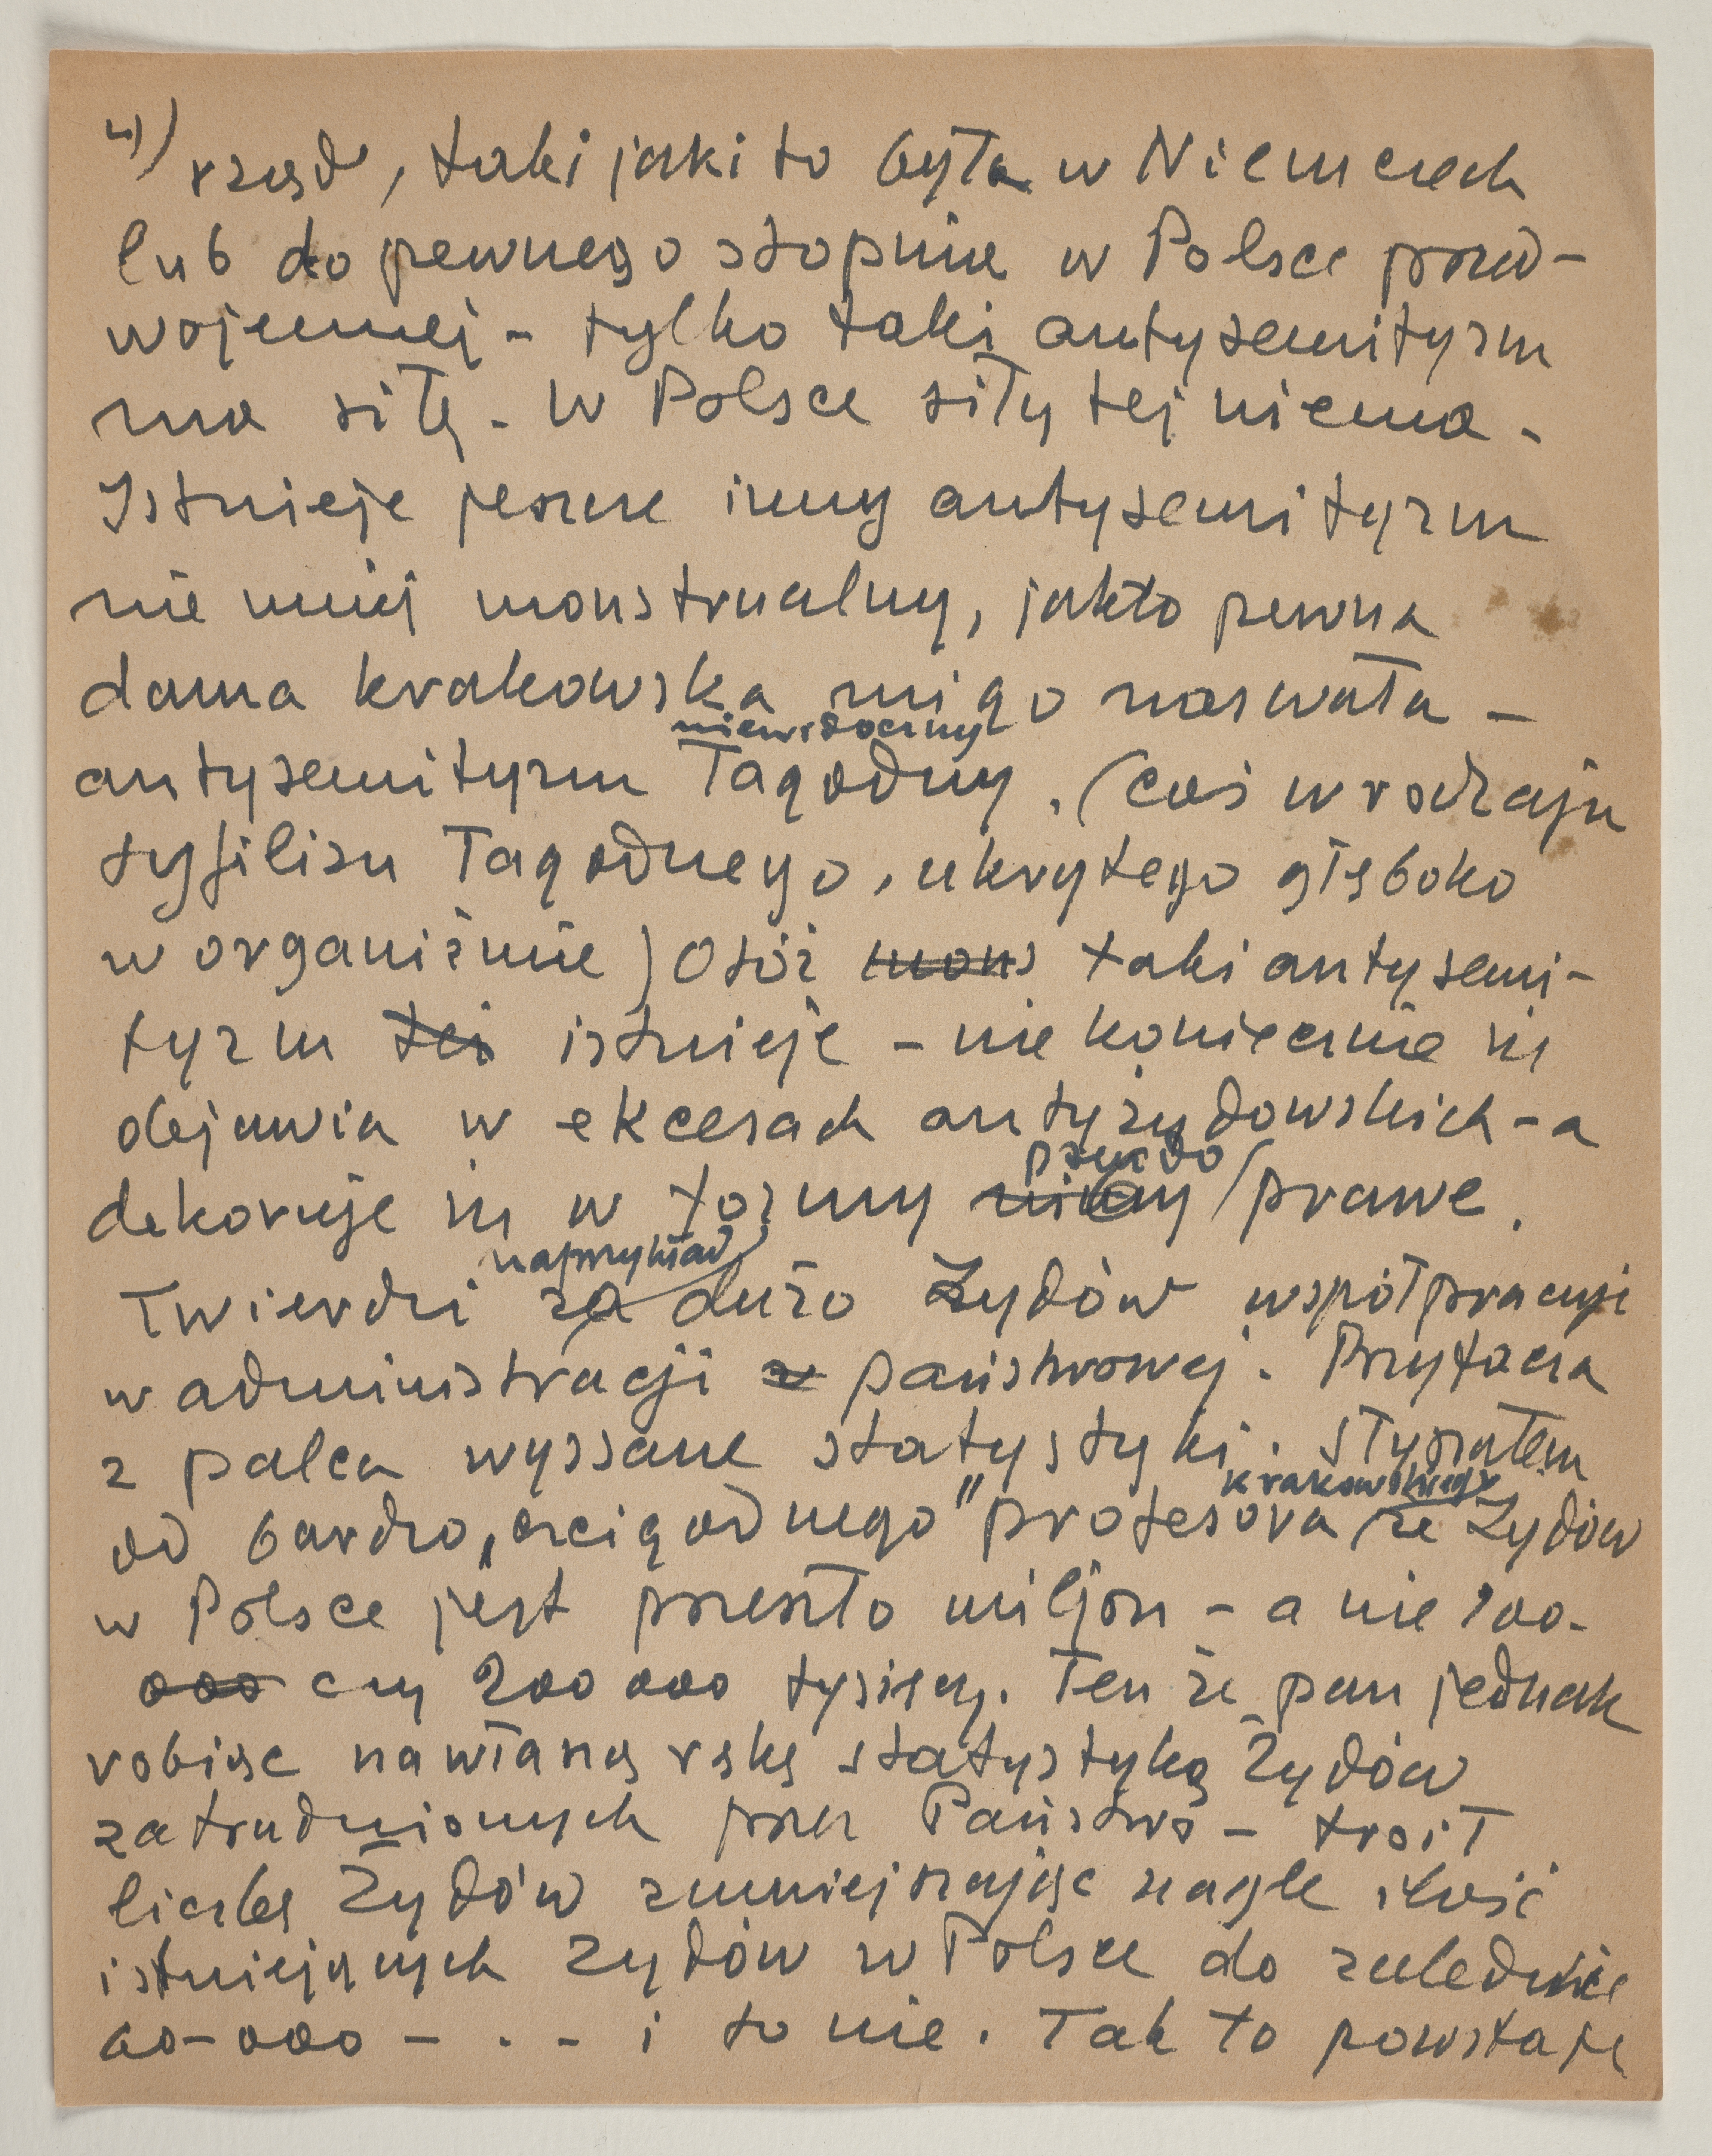 4)
rząd, taki jaki to była w Niemczech
lub do pewnego stopnia w Polsce przed-
wojennej - tylko taki antysemityzm
ma siłę. W Polsce siły tej niema.
Istnieje jeszcze inny antysemityzm
nie mniej monstrualny, jakto pewna
dama krakowska mi go nazwała -
niewidoczny
antysemityzm łagodny. (coś w rodzaju
syfilisu łagodnego, ukrytego głęboko
w organiźmie) Otóż mons taki antysemi-
tyzm też istnieje - nie koniecznie się
objawia w ekscesach antyżydowskich - a
pseudo
dekoruje się w formy prawe.
naprzykład
Twierdzi za dużo Żydów współpracuje
w administracji państwowej. Przytacza
z palca wyssane statystyki. Słyszałem
krakowskiego
od bardzo „czcigodnego” profesora że Żydów
w Polsce jest przeszło miljon - a nie 100-
000 czy 200 000 tysięcy. Ten że pan jednak
robiąc na własną rękę statystykę Żydów
zatrudnionych przez Państwo - troił
liczbę Żydów zmniejszając nagle ilość
istniejących Żydów w Polsce do zaledwie
60-000 - . . - i to nie. Tak to powstaje